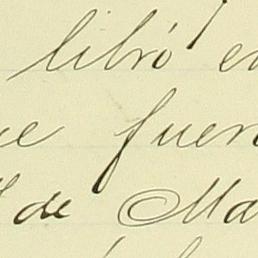 libró e
ue fuer
de Ma